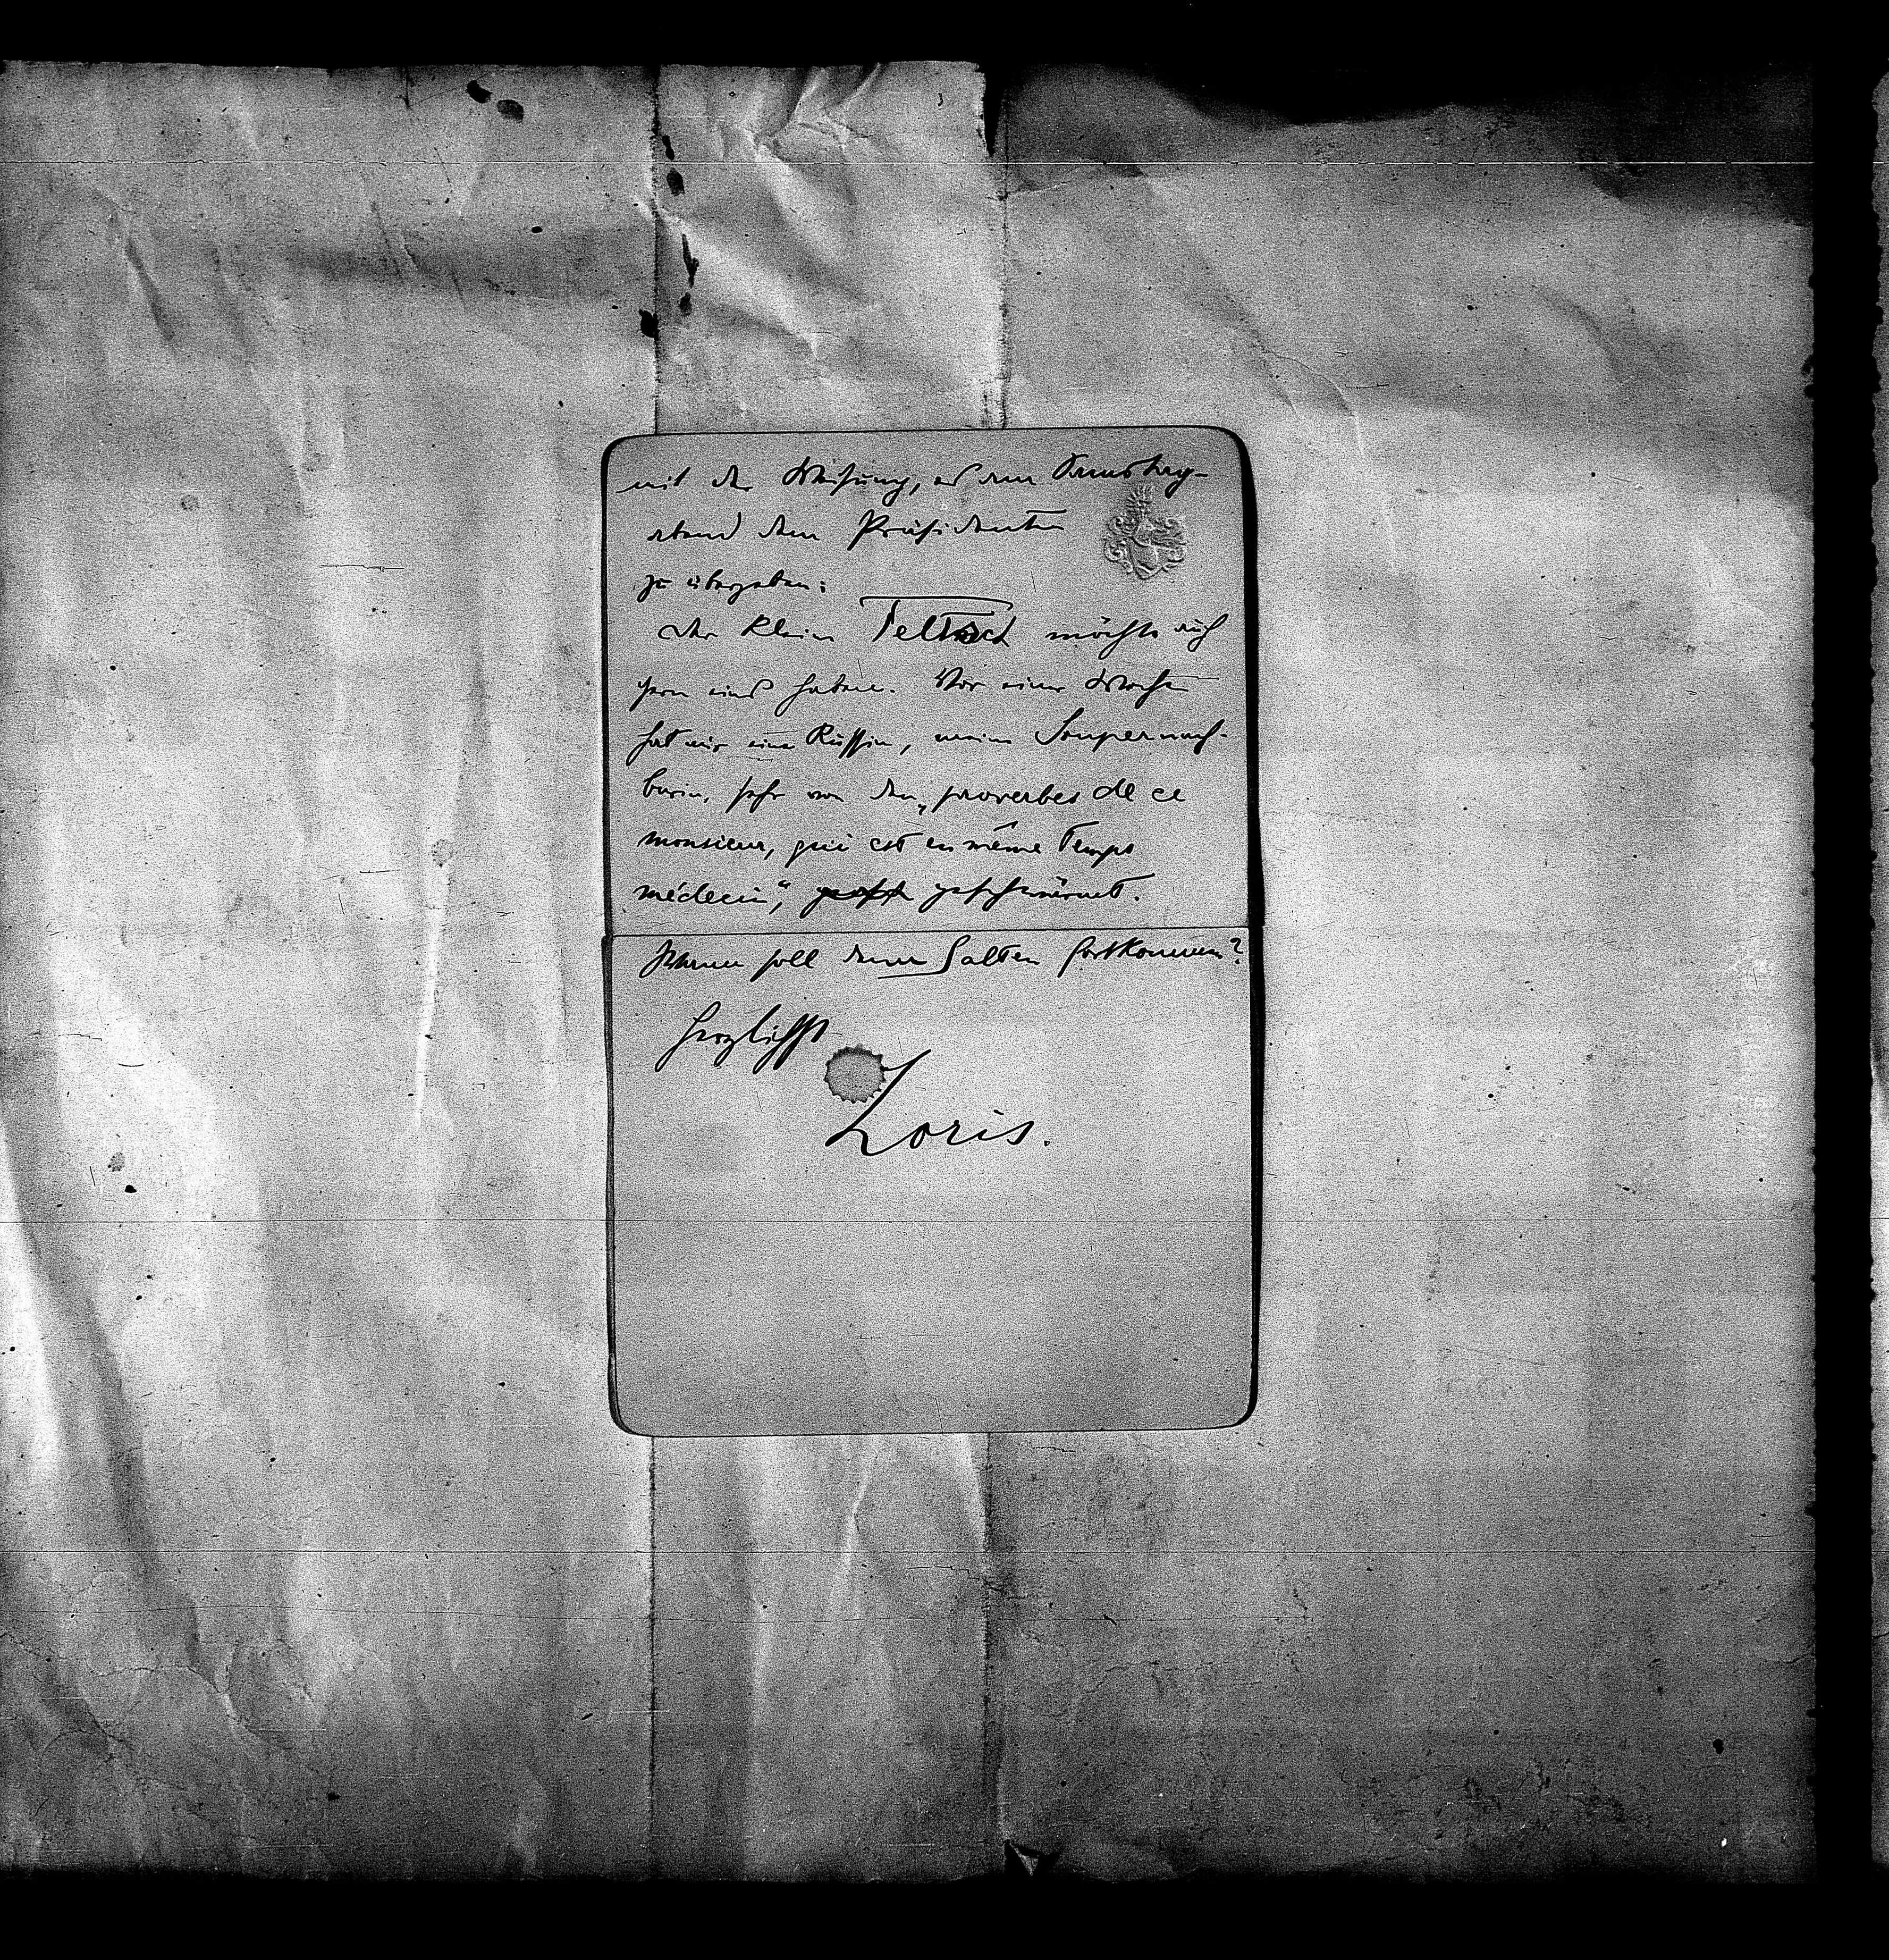 mit der Weisung, es am Samstag-
abend dem Präsidenten
zu übergeben.
Der kleine Feltsch möchte auch
gern eins haben. Vor einer Woche
hat mir eine Russin, meine Soupernach-
barin, sehr von den „proverbes de ce
monsieur, qui est en même temps
médecin“, geschwärmt.
Wann soll denn Salten fortkommen?
Herzlichst
Loris.